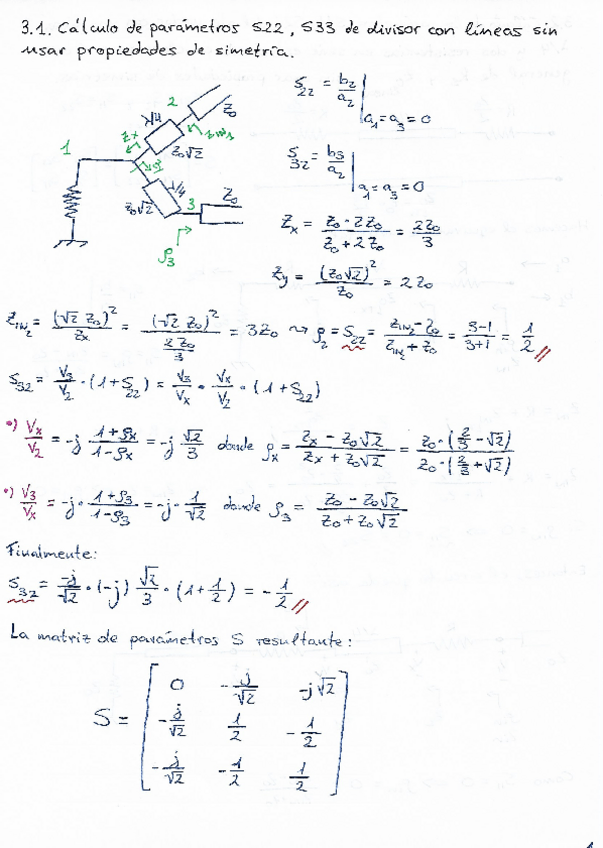 3.1. Cálculo de parámetros S22, S33 de divisor con líneas sin
usar propiedades de simetría.
S22 = b2/a2 | a1=a3=0
S32 = b3/a2 | a1=a3=0
1
2
3
λ/4
λ/4
Z0
Z0
Z0√2
Z0√2
Zx
ZIN2
ρ3
Zx = Z0·2Z0/(Z0+2Z0) = 2Z0/3
Zy = (Z0√2)²/Z0 = 2Z0
ZIN2 = (√2 Z0)²/Zx = (√2 Z0)²/(2Z0/3) = 3Z0 ⇝ ρ2 = S22 = (ZIN2-Z0)/(ZIN2+Z0) = (3-1)/(3+1) = 1/2 //
S32 = V3/V2 · (1+S22) = V3/Vx · Vx/V2 · (1+S22)
•) Vx/V2 = -j (1+ρx)/(1-ρx) = -j √2/3 donde ρx = (Zx - Z0√2)/(Zx + Z0√2) = Z0·(2/3 - √2)/Z0·(2/3 + √2)
•) V3/Vx = -j · (1+ρ3)/(1-ρ3) = -j · 1/√2 donde ρ3 = (Z0 - Z0√2)/(Z0 + Z0√2)
Finalmente:
S32 = -j/√2 · (-j) √2/3 · (1+1/2) = -1/2 //
La matriz de parámetros S resultante:
0 -j/√2 -j√2
S = -j/√2 1/2 -1/2
-j/√2 -1/2 1/2